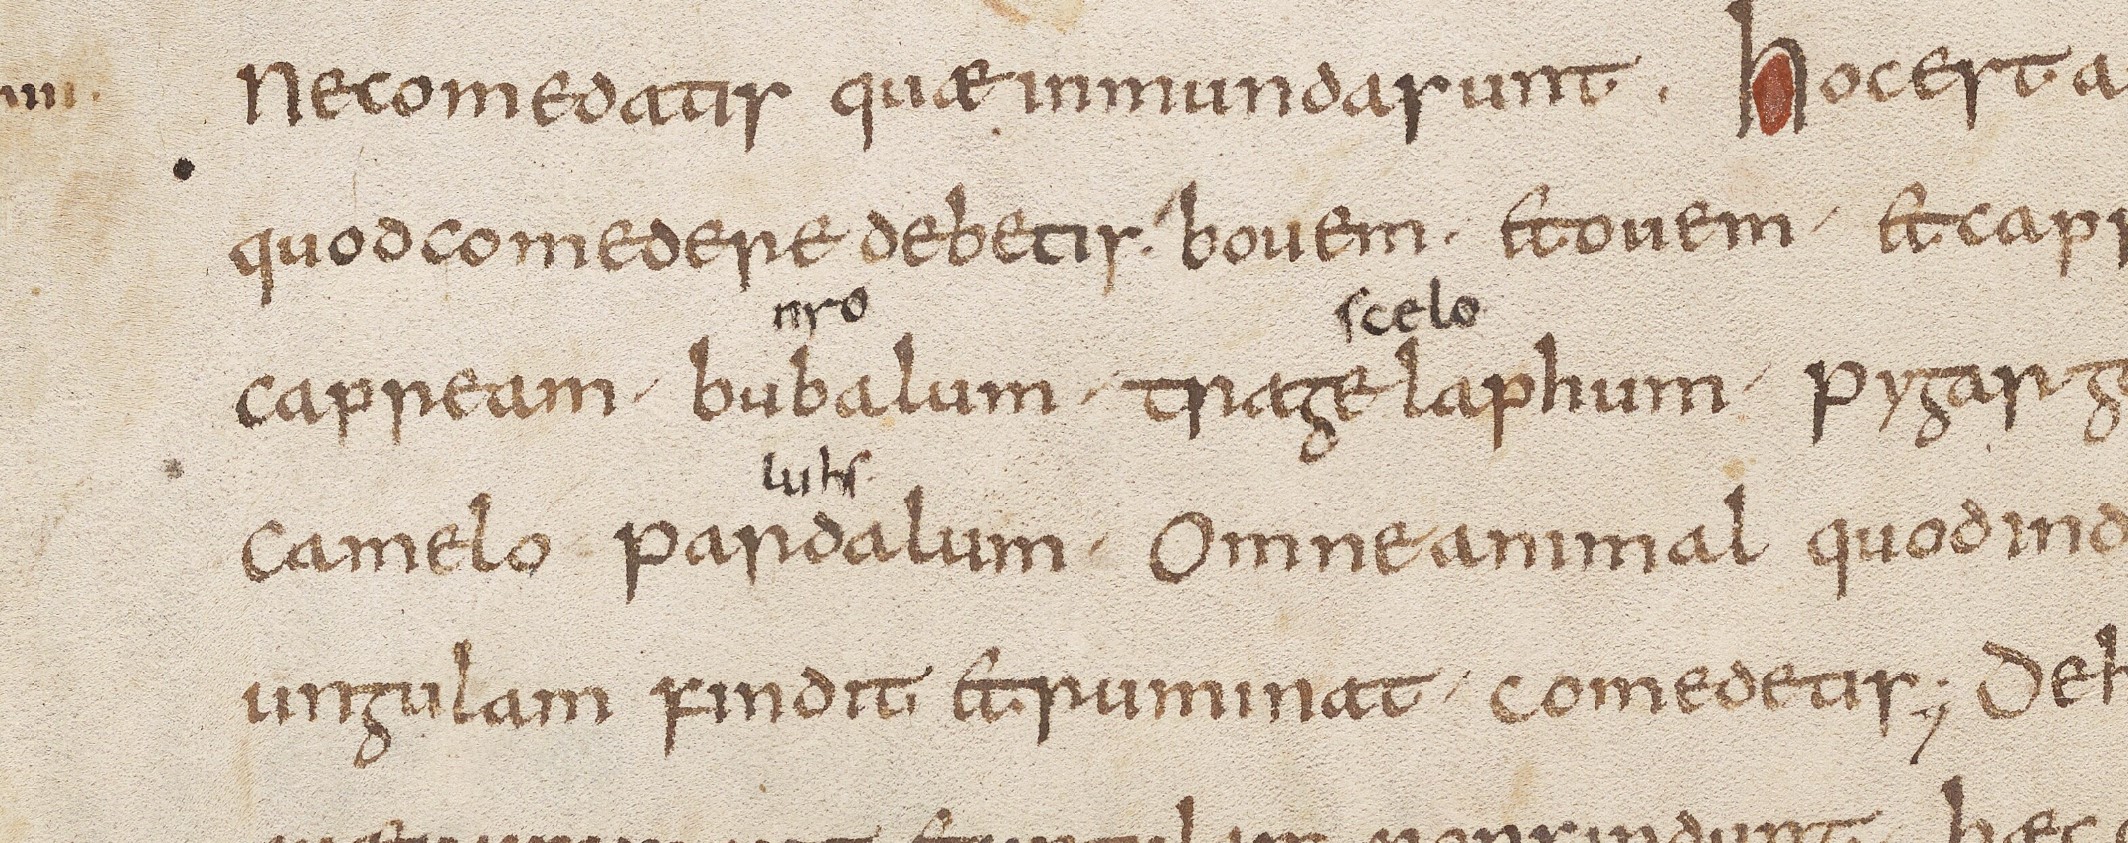 IIII.
Ne comedatis quæ inmunda sunt. hoc est a
quod comedere debetis. bouem. et ouem et cap
nſo scelo
capream bubalum tragelaphum pygarg
luhſ
Camelo pardalum. Omne animal quod ind
ungulam findit et ruminat comedetis; De h
non findunt hæc